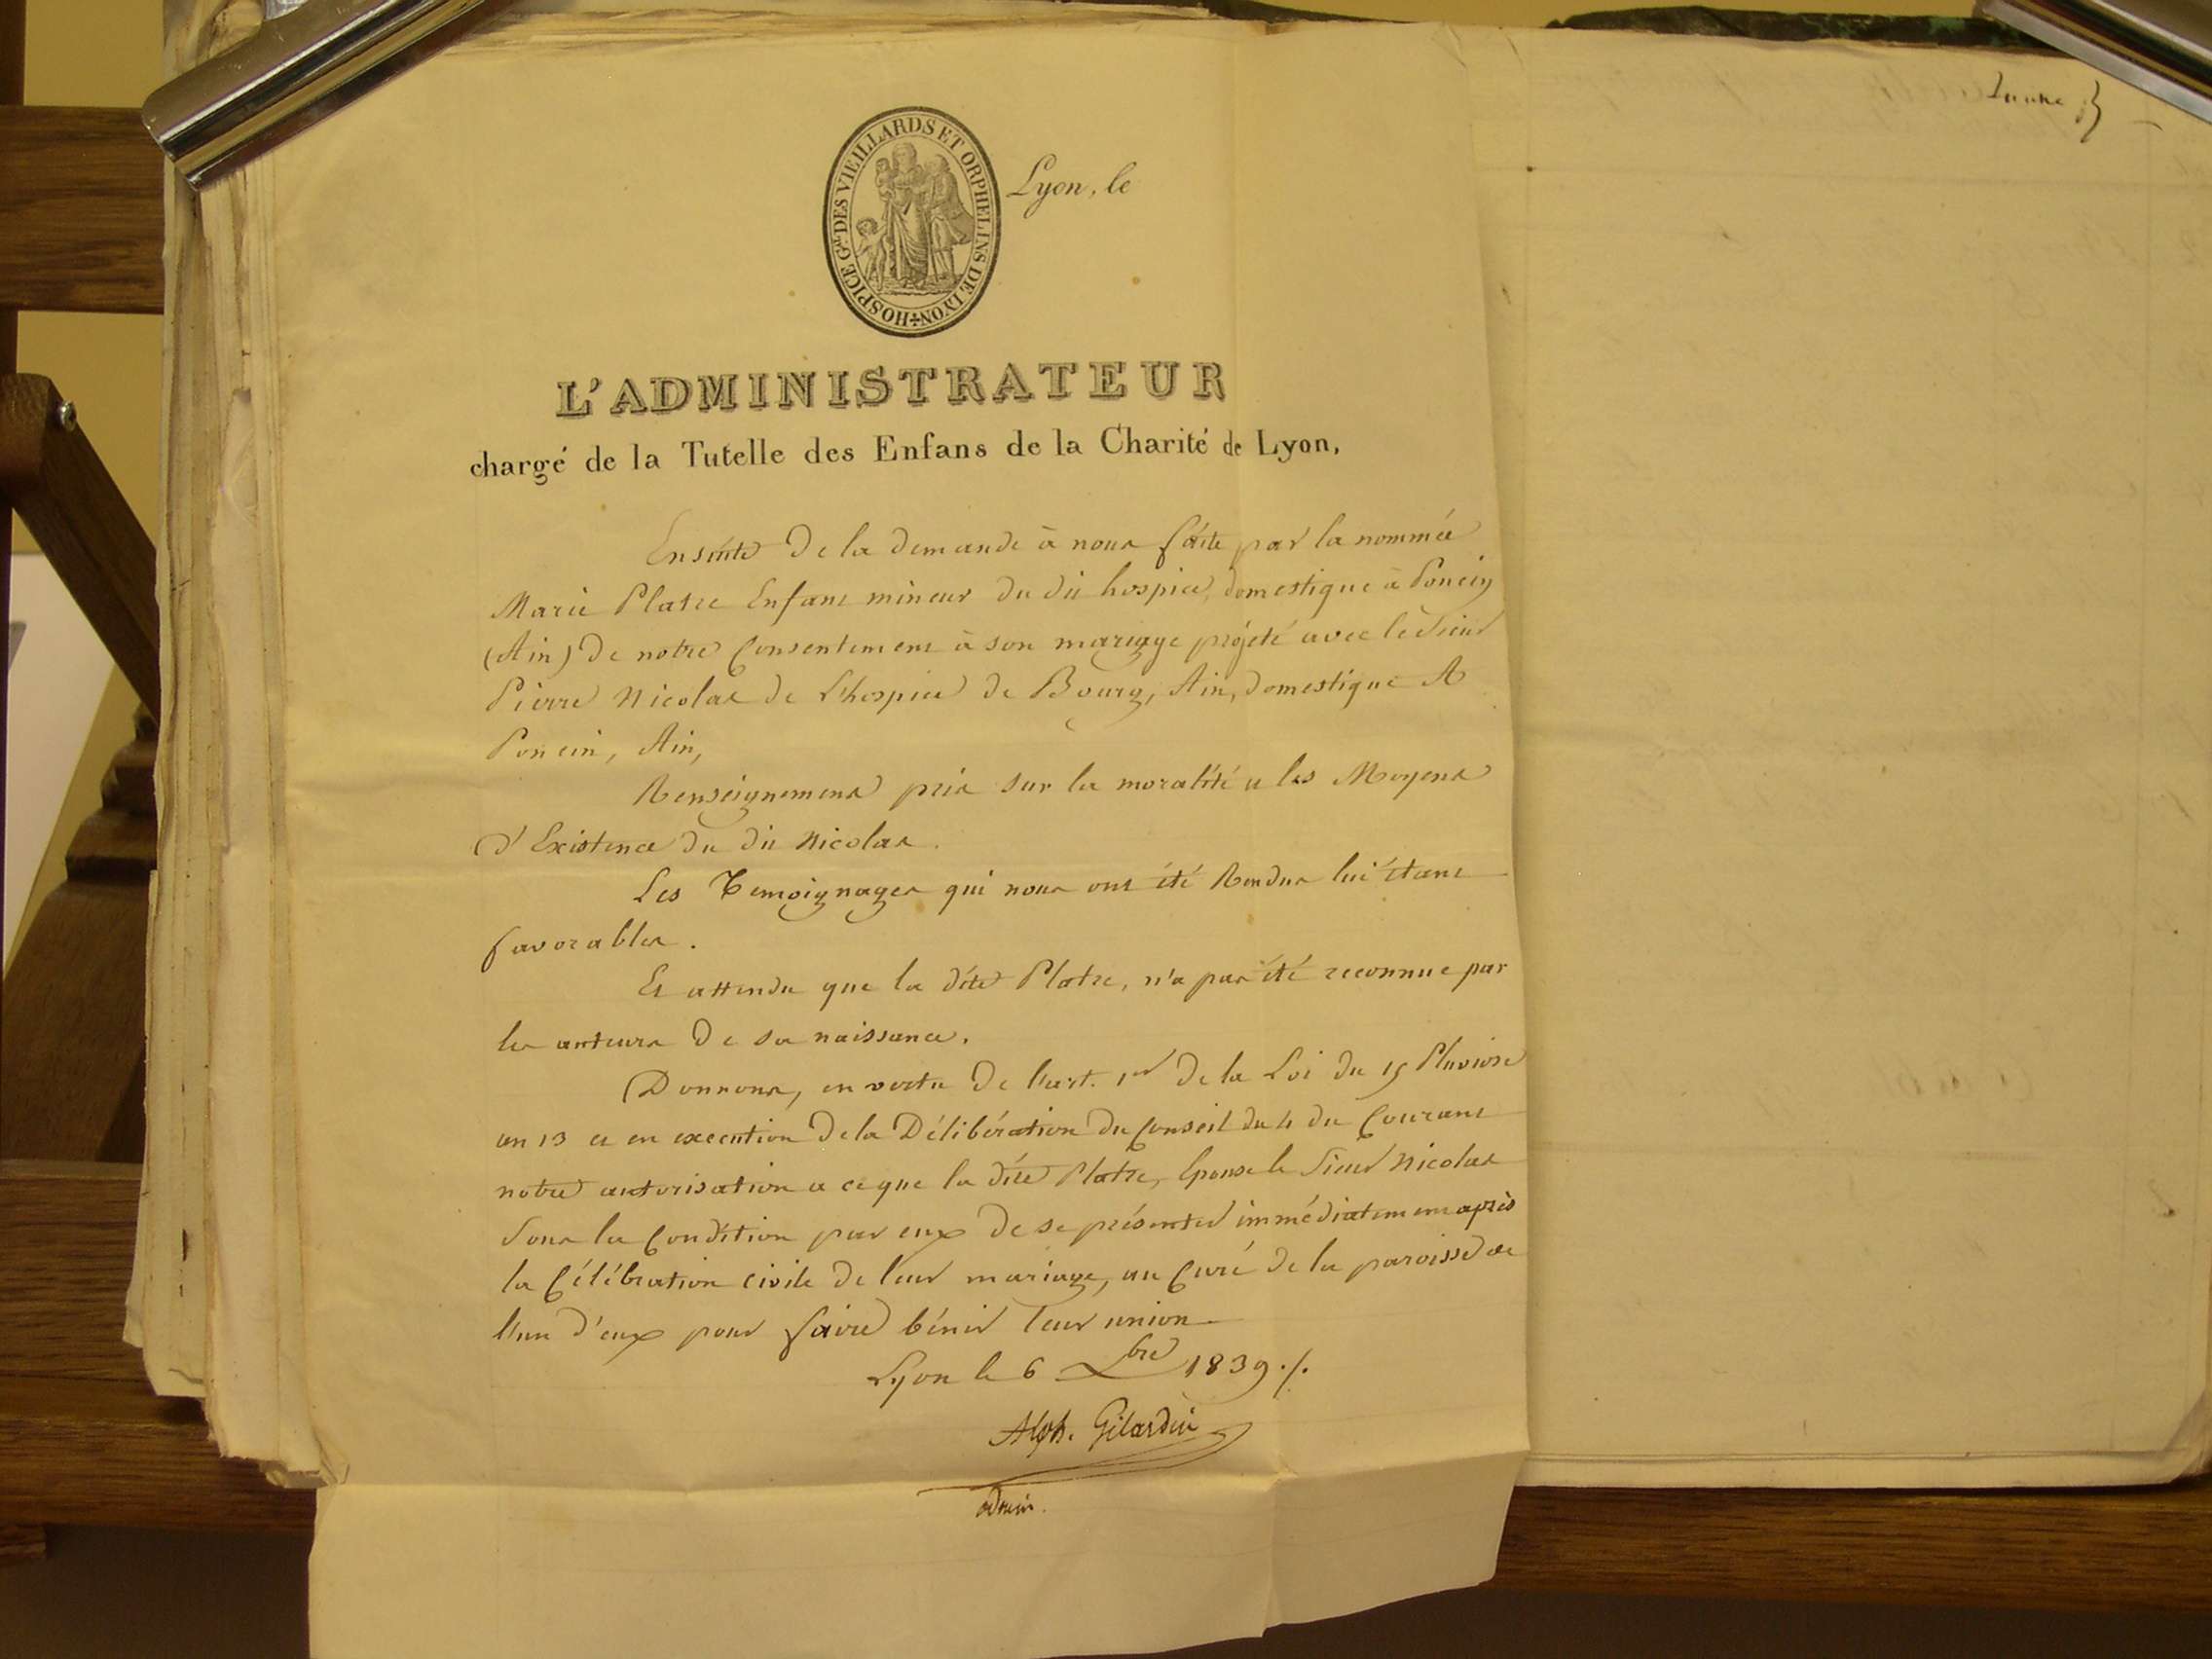 HOSPICE Gal DES VIEILLARDS ET ORPHELINS DE LYON
Lyon, le
L'ADMINISTRATEUR
chargé de la Tutelle des Enfans de la Charité de Lyon,
Ensuite de la demande à nous faite par la nommée
Marie Platre Enfant mineur du dit hospice, domestique à Poncin
(Ain) de notre Consentement à son mariage projeté avec le Sieur
Pierre Nicolas de l'hospice de Bourg, Ain, domestique A
Poncin, Ain,
Renseignemens pris sur la moralité et les Moyens
d'Existence du dit Nicolas.
Les Temoignages qui nous ont été Rendus lui étant
favorables.
Et attendu que la dite Platre, n'a pas été reconnue par
les auteurs de sa naissance.
Donnons, en vertu de l'art. 1er de la Loi du 15 Pluviose
an 13 et en execution de la Délibération du Conseil du 4 du Courant
notre autorisation a ce que la dite Platre, Epouse le Sieur Nicolas
Sous la Condition par eux de se présenter immédiatement après
la Célébration civile de leur mariage, au Curé de la paroisse de
l'un d'eux pour faire bénir leur union
Lyon le 6 Xbre 1839 ./.
Alph. Gilardin
admin.